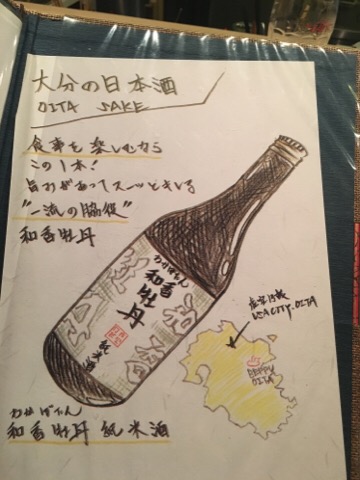 大分の日本酒
OITA SAKE
食事を楽しむなら
この1本!
旨みがあってスーッとキレる
"一流の脇役"
和香牡丹
わかぼたん
和香
牡丹
純米酒
宇佐市
USA CITY. OITA
BEPPU
OITA
わかぼたん
和香牡丹 純米酒